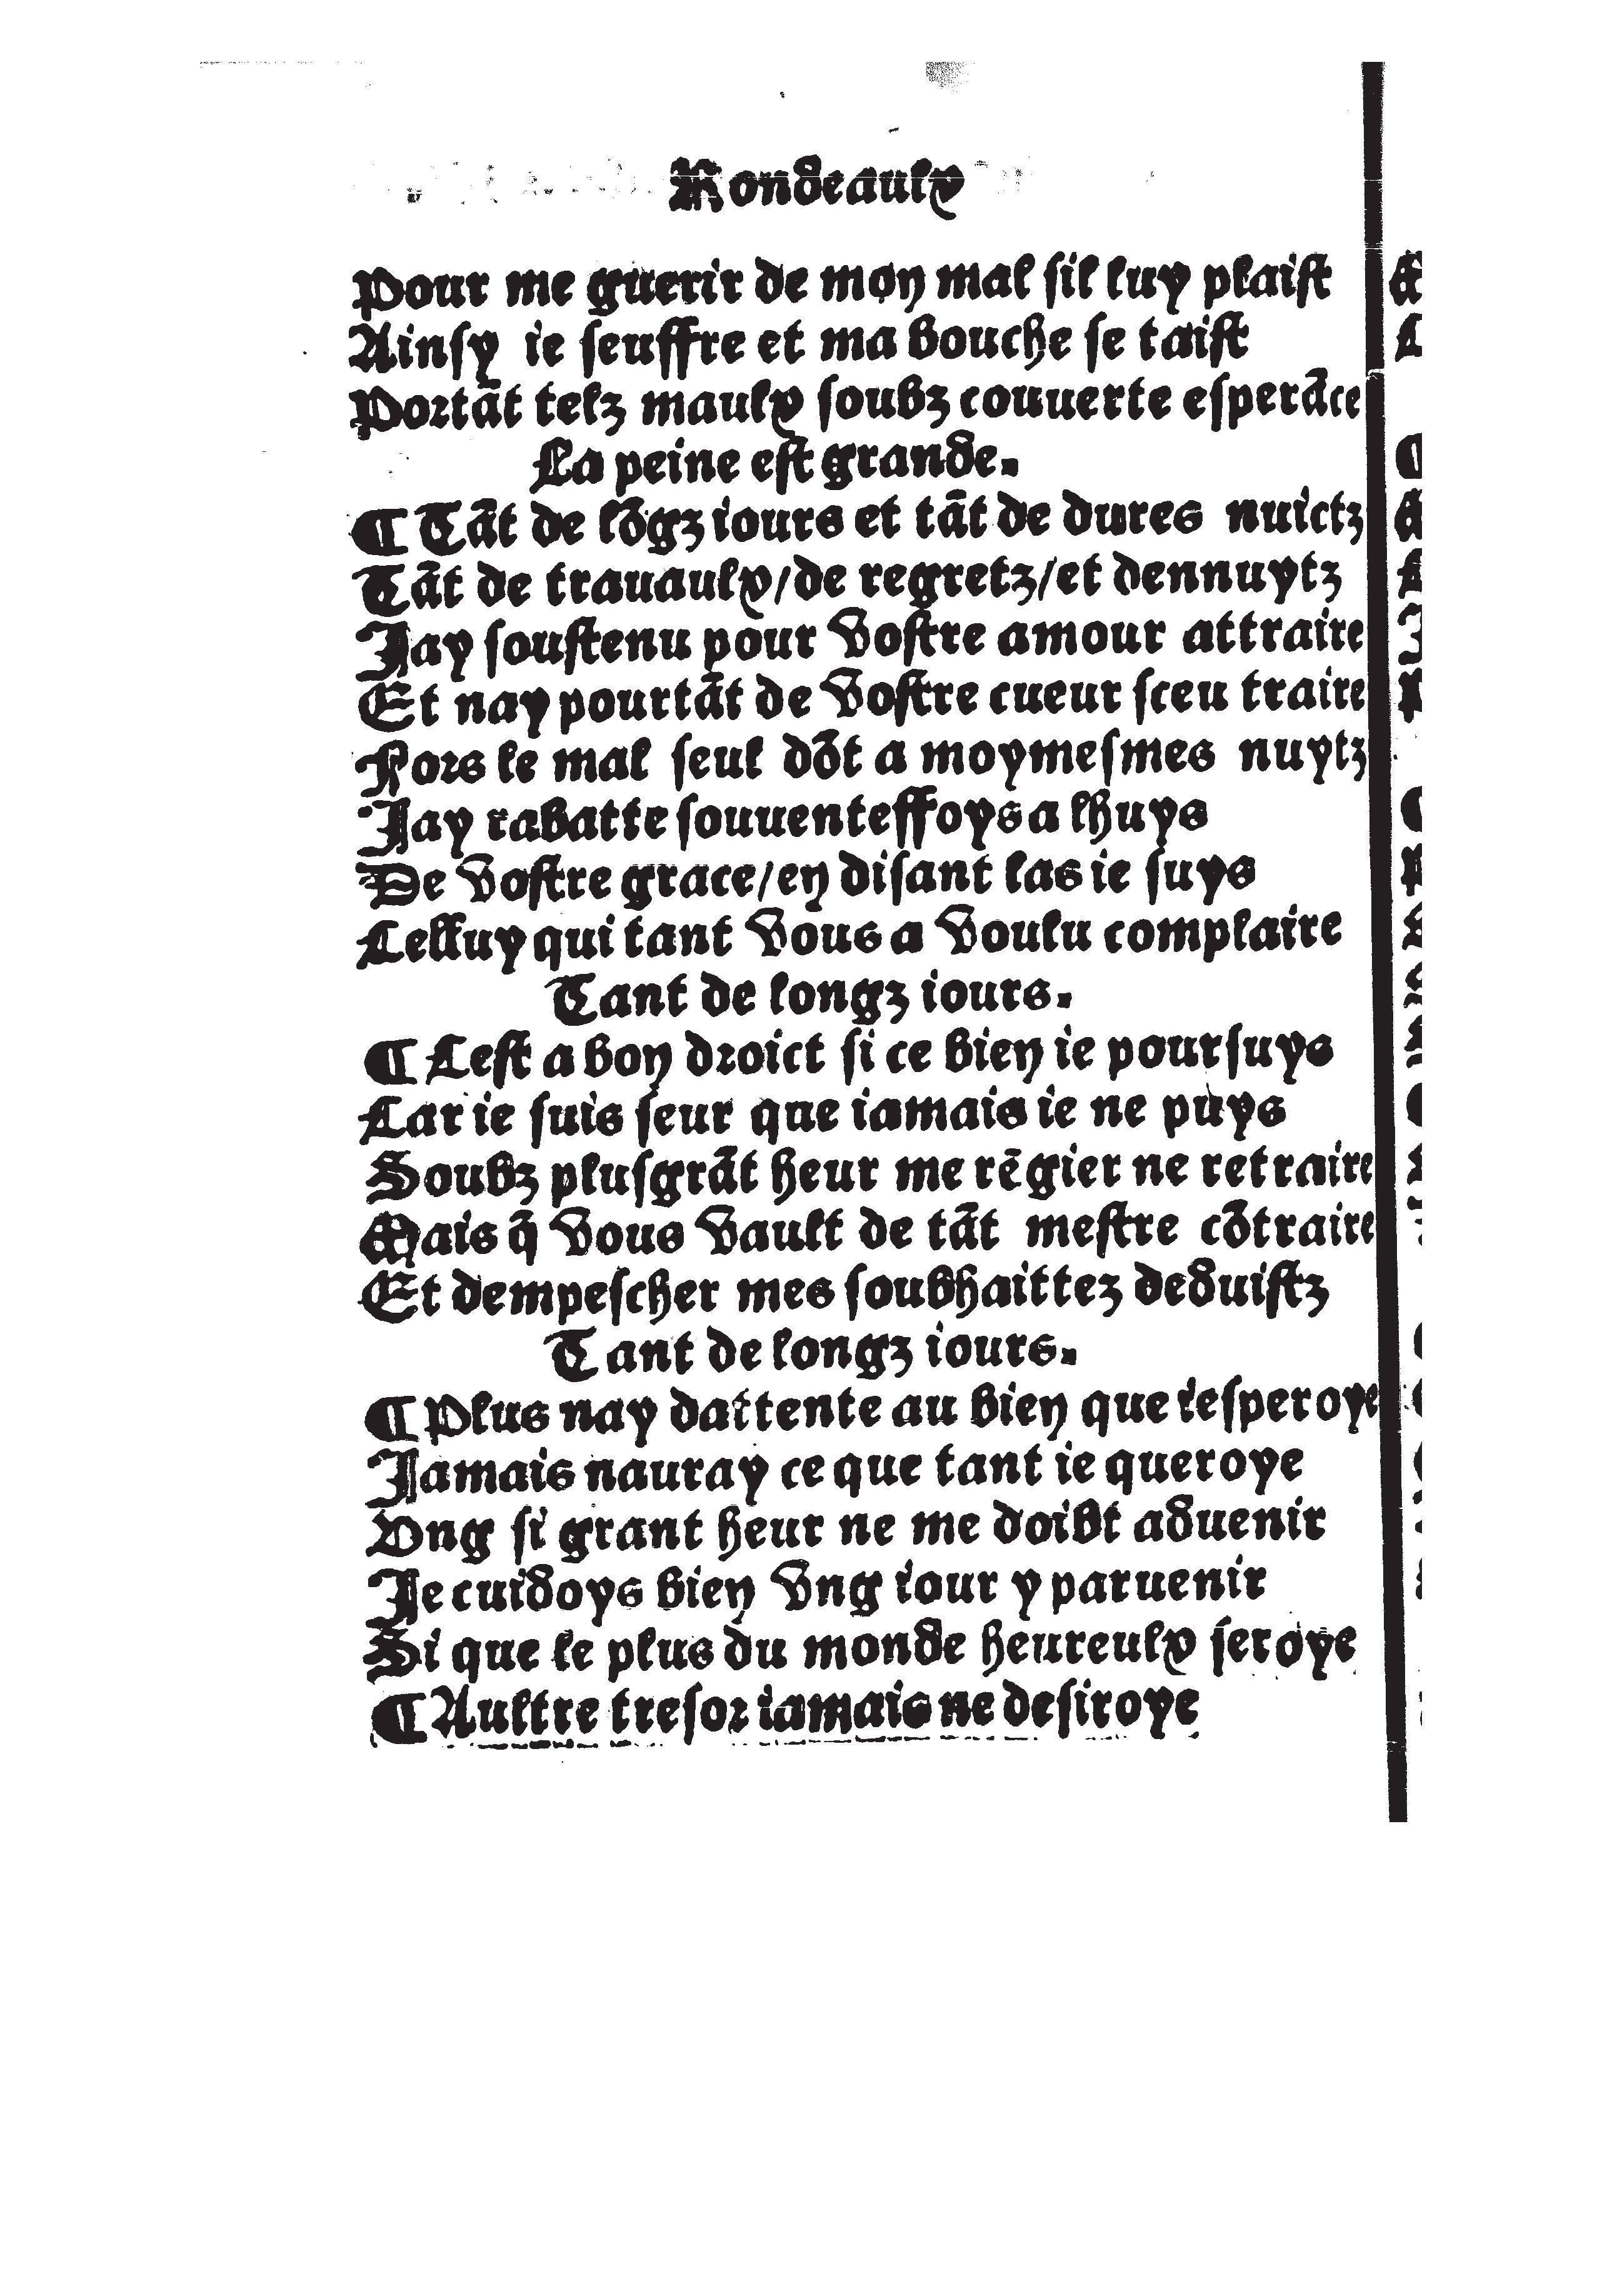 Rondeaulx
Pour me guerir de mon mal sil luy plaist
Ainsy ie seuffre et ma bouche se taist
Portāt telz maulx soubz couuerte esperāce
La peine est grande.
¶ Tāt de lōgz iours et tāt de dures nuictz
Tāt de trauaulx/de regretz/et dennuytz
Jay soustenu pour vostre amour attraire
Et nay pourtāt de vostre cueur sceu traire
Fors le mal seul dōt a moymesmes nuytz
Jay rabatte souuenteffoys a lhuys
De vostre grace/en disant las ie suys
Celluy qui tant vous a voulu complaire
Tant de longz iours.
¶ Cest a bon droict si ce bien ie poursuys
Car ie suis seur que iamais ie ne puys
Soubz plusgrāt heur me rēgier ne retraire
Mais q̄ vous vault de tāt mestre cōtraire
Et dempescher mes soubhaittez deduistz
Tant de longz iours.
¶ Plus nay dattente au bien que iesperoye
Jamais nauray ce que tant ie queroye
Vng si grant heur ne me doibt aduenir
Je cuidoys bien vng iour y paruenir
Si que le plus du monde heureulx seroye
¶ Aultre tresor iamais ne desiroye